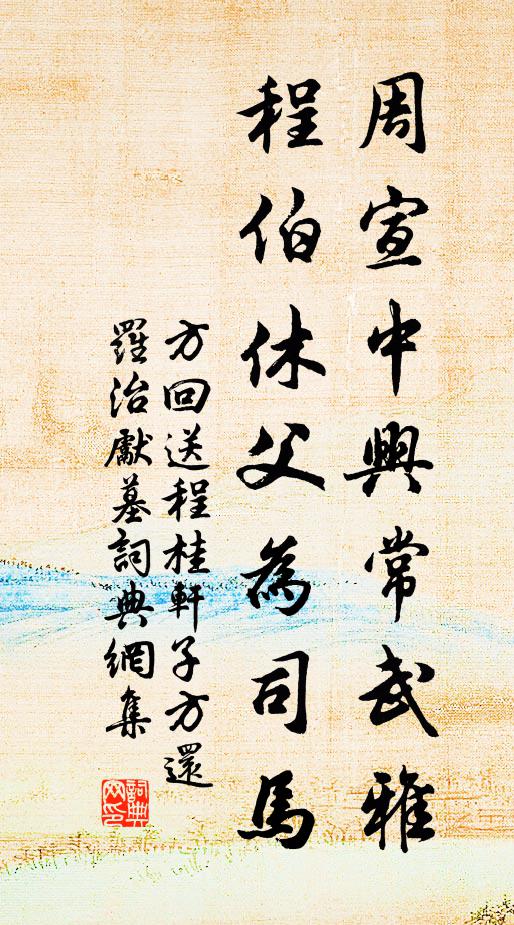 周宣中興常武雅
程伯休父為司馬
方回送程桂軒子方還
羅治獻墓詞典網集
詞典
网印